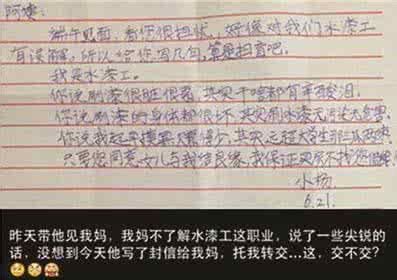 阿姨：
端午见面，看你很担忧，好像对我们水漆工
有误解，所以给你写几句，算是扫盲吧。
我是水漆工。
你说刷漆很脏很累，其实干啥都有辛酸泪
你说刷漆的身体都很坏，其实刷水漆无污染无危害
你说我起早摸黑赚得少，其实远超大学生那三瓜两枣
只要您同意女儿与我结良缘，我保证买房不找您借
小杨
6.21.
昨天带他见我妈，我妈不了解水漆工这职业，说了一些尖锐的
话，没想到今天他写了封信给我妈，托我转交...这，交不交？